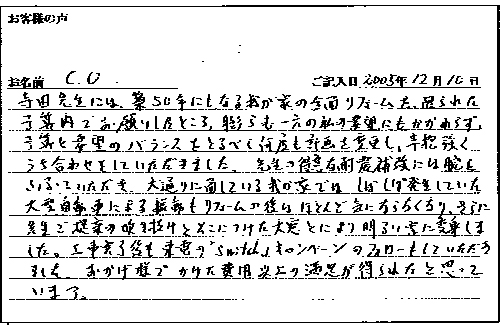 お客様の声
お名前 C.U. ご記入日 2003年12月10日
寺田先生には、築50年にもなる我が家の全面リフォームを、限られた
予算内でお願いしたところ、膨らむ一方の私の要望にもかかわらず、
予算と要望のバランスをとるべく何度も計画を変更し、辛抱強く
うち合わせをしていただきました。先生の得意な耐震補強には腕を
ふるっていただき、大通りに面している我が家では、しばしば発生していた
大型自動車による振動もリフォームの後はほとんど気にならなくなり、さらに
先生ご提案の吹き抜けとそこにつけた天窓とにより明るい家に変身しま
した。工事完了後も東電の"Switch!"キャンペーンのフォローもしていただき
ました。おかげ様でかけた費用以上の満足が得られたと思って
います。